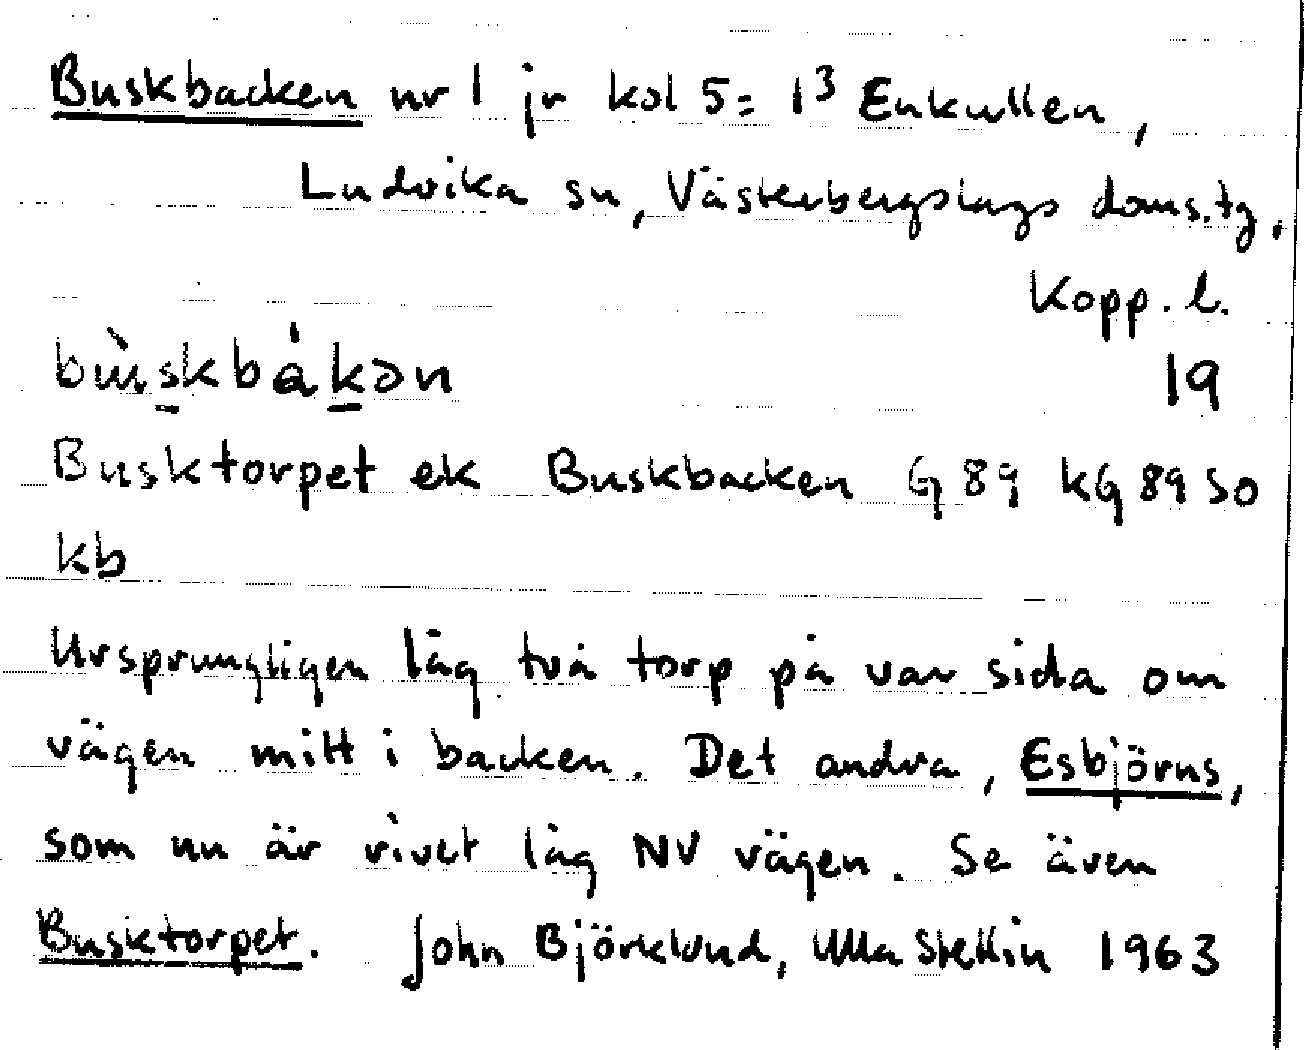 Buskbacken nr 1 jr kol 5 = 1³ Enkullen,
Ludvika sn, Västerbergslags doms.tg,
Kopp. l.
bùskbákən 19
Busktorpet ek Buskbacken G 89 kG 89 SO
kb
Ursprungligen låg två torp på var sida om
vägen mitt i backen. Det andra, Esbjörns,
som nu är rivet låg NV vägen. Se även
Busktorpet. John Björklund, Ulla Stellin 1963